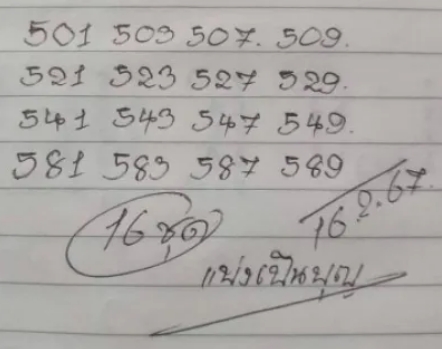 501 503 507. 509.
521 523 527 529.
541 543 547 549.
581 583 587 589
16 ชุด
16.2.67.
แบ่งเป็นบุญ